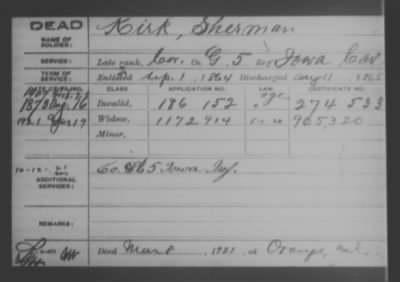 DEAD
NAME OF SOLDIER: Kirk, Sherman
SERVICE: Late rank, Cor. Co. G. 5 Reg Iowa Cav
TERM OF SERVICE: Enlisted Sep. 1, 1864 Discharged Aug 11, 1865
DATE OF FILING. CLASS APPLICATION NO. LAW CERTIFICATE NO.
1873 Aug. 16 Invalid, 186 152 274 533
1921 Widow, 1172 914 905320
Minor,
ADDITIONAL SERVICES: Co. 5 Iowa Inf.
REMARKS:
Died Mar 8, 1921, at Orange, Cal.